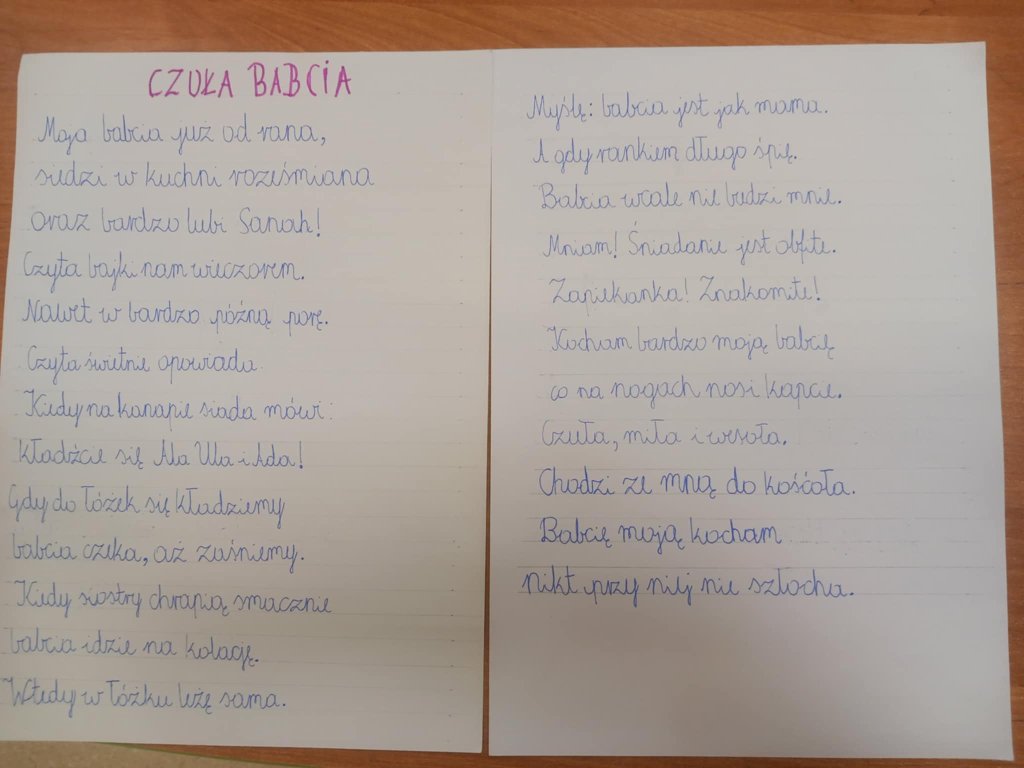 CZUŁA BABCIA
Moja babcia już od rana,
siedzi w kuchni roześmiana
oraz bardzo lubi Sanah!
Czyta bajki nam wieczorem.
Nawet w bardzo późną porę.
Czyta świetnie opowiada.
Kiedy na kanapie siada mówi:
kładźcie się Ala Ula i Ada!
Gdy do łóżek się kładziemy
babcia czeka, aż zaśniemy.
Kiedy siostry chrapią smacznie
babcia idzie na kolację.
Wtedy w łóżku leżę sama.
Myślę: babcia jest jak mama.
A gdy rankiem długo śpię.
Babcia wcale nie budzi mnie.
Mniam! Śniadanie jest obfite.
Zapiekanka! Znakomite!
Kocham bardzo moją babcię
co na nogach nosi kapcie.
Czuła, miła i wesoła.
Chodzi ze mną do kośćoła.
Babcię moją kocham
nikt przy niej nie szlocha.